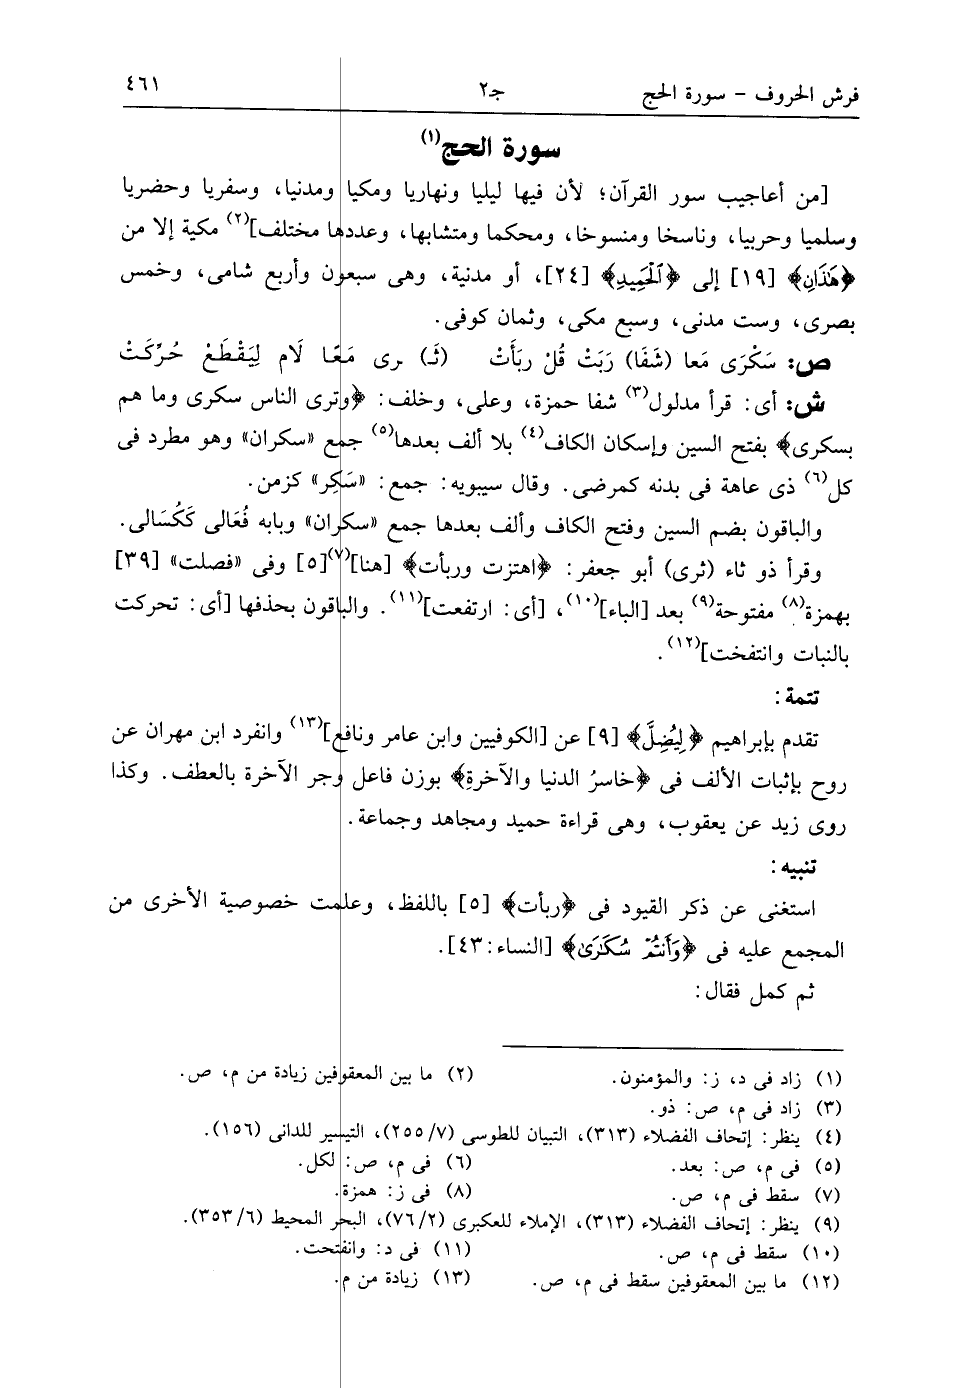 فرش الحروف - سورة الحج
جـ٢
٤٦١
سورة الحج(١)
[من أعاجيب سور القرآن؛ لأن فيها ليليا ونهاريا ومكيا ومدنيا، وسفريا وحضريا
وسلميا وحربيا، وناسخا ومنسوخا، ومحكما ومتشابها، وعددها مختلف](٢) مكية إلا من
﴿هَٰذَانِ﴾ [١٩] إلى ﴿ٱلْحَمِيدِ﴾ [٢٤]، أو مدنية، وهى سبعون وأربع شامى، وخمس
بصرى، وست مدنى، وسبع مكى، وثمان كوفى.
ص: سَكْرَى مَعا (شَفَا) رَبَتْ قُلْ رَبَأَتْ (ثَـ) ـرى مَعًا لَام لِيَقْطَعْ حُرِّكَتْ
ش: أى: قرأ مدلول(٣) شفا حمزة، وعلى، وخلف: ﴿وترى الناس سكرى وما هم
بسكرى﴾ بفتح السين وإسكان الكاف(٤) بلا ألف بعدها(٥) جمع «سكران» وهو مطرد فى
كل(٦) ذى عاهة فى بدنه كمرضى. وقال سيبويه: جمع: «سَكِر» كزمن.
والباقون بضم السين وفتح الكاف وألف بعدها جمع «سكران» وبابه فُعَالى كَكُسَالى.
وقرأ ذو ثاء (ثرى) أبو جعفر: ﴿اهتزت وربأت﴾ [هنا](٧)[٥] وفى «فصلت» [٣٩]
بهمزة(٨) مفتوحة(٩) بعد [الباء](١٠)، [أى: ارتفعت](١١). والباقون بحذفها [أى: تحركت
بالنبات وانتفخت](١٢).
تتمة:
تقدم بإبراهيم ﴿لِيُضِلَّ﴾ [٩] عن [الكوفيين وابن عامر ونافع](١٣) وانفرد ابن مهران عن
روح بإثبات الألف فى ﴿خاسرُ الدنيا والآخرةِ﴾ بوزن فاعل وجر الآخرة بالعطف. وكذا
روى زيد عن يعقوب، وهى قراءة حميد ومجاهد وجماعة.
تنبيه:
استغنى عن ذكر القيود فى ﴿ربأت﴾ [٥] باللفظ، وعلمت خصوصية الأخرى من
المجمع عليه فى ﴿وَأَنتُمْ سُكَٰرَىٰ﴾ [النساء: ٤٣].
ثم كمل فقال:
(١) زاد فى د، ز: والمؤمنون. (٢) ما بين المعقوفين زيادة من م، ص.
(٣) زاد فى م، ص: ذو.
(٤) ينظر: إتحاف الفضلاء (٣١٣)، التبيان للطوسى (٢٥٥/٧)، التيسير للدانى (١٥٦).
(٥) فى م، ص: بعد. (٦) فى م، ص: لكل.
(٧) سقط فى م، ص. (٨) فى ز: همزة.
(٩) ينظر: إتحاف الفضلاء (٣١٣)، الإملاء للعكبرى (٧٦/٢)، البحر المحيط (٣٥٣/٦).
(١٠) سقط فى م، ص. (١١) فى د: وانفتحت.
(١٢) ما بين المعقوفين سقط فى م، ص. (١٣) زيادة من م.